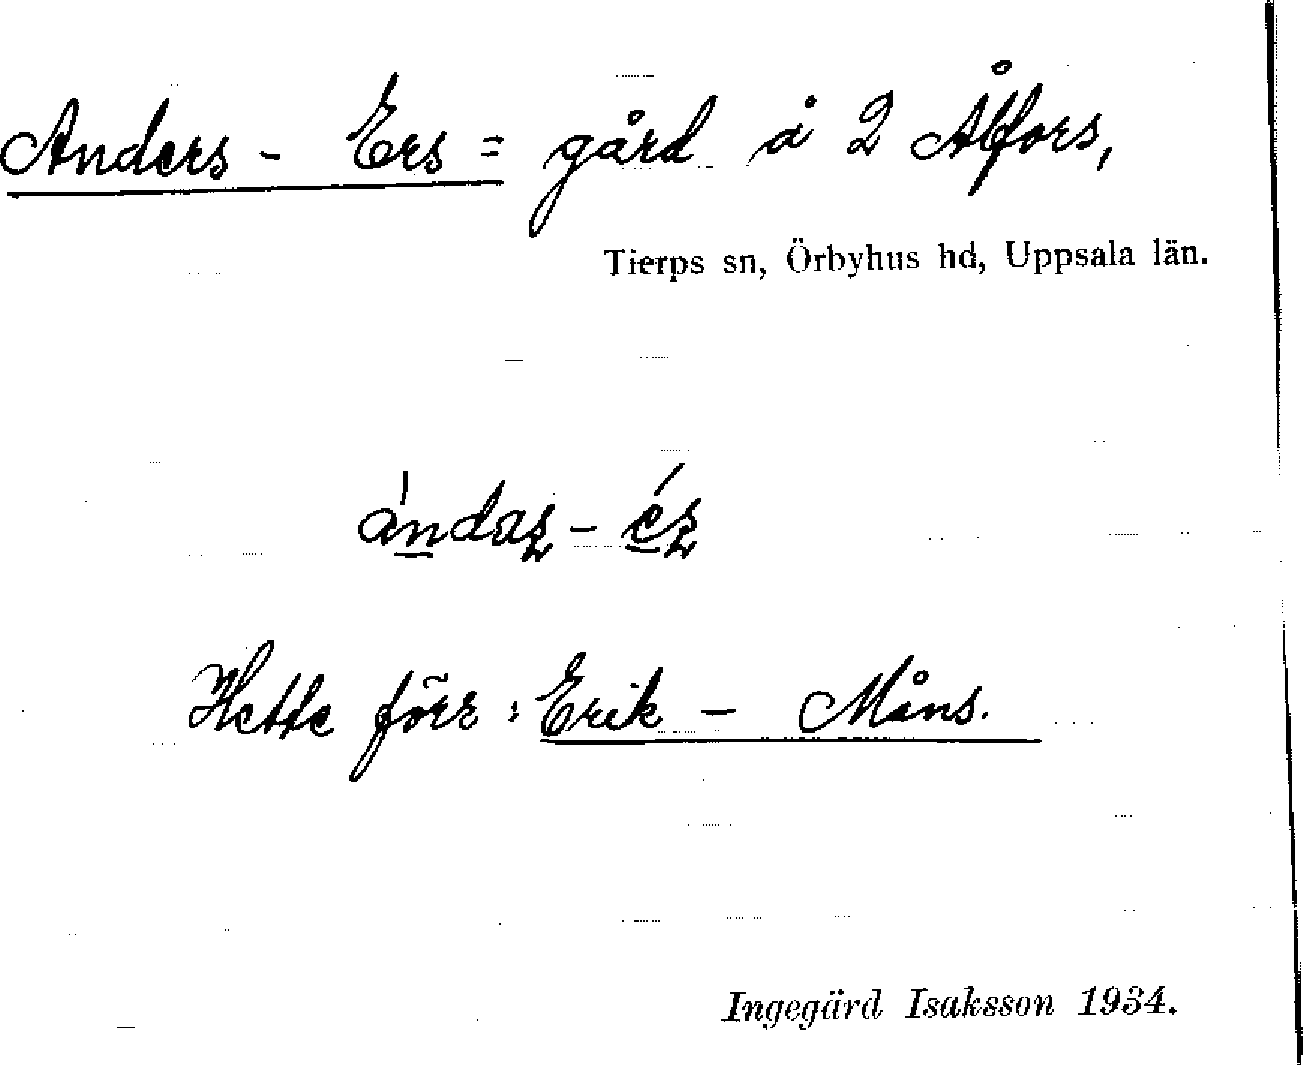 Anders - Ers = gård å 2 Åbfors,
Tierps sn, Örbyhus hd, Uppsala län.
ándas - és
Hette förr: Erik - Måns.
Ingegärd Isaksson 1934.